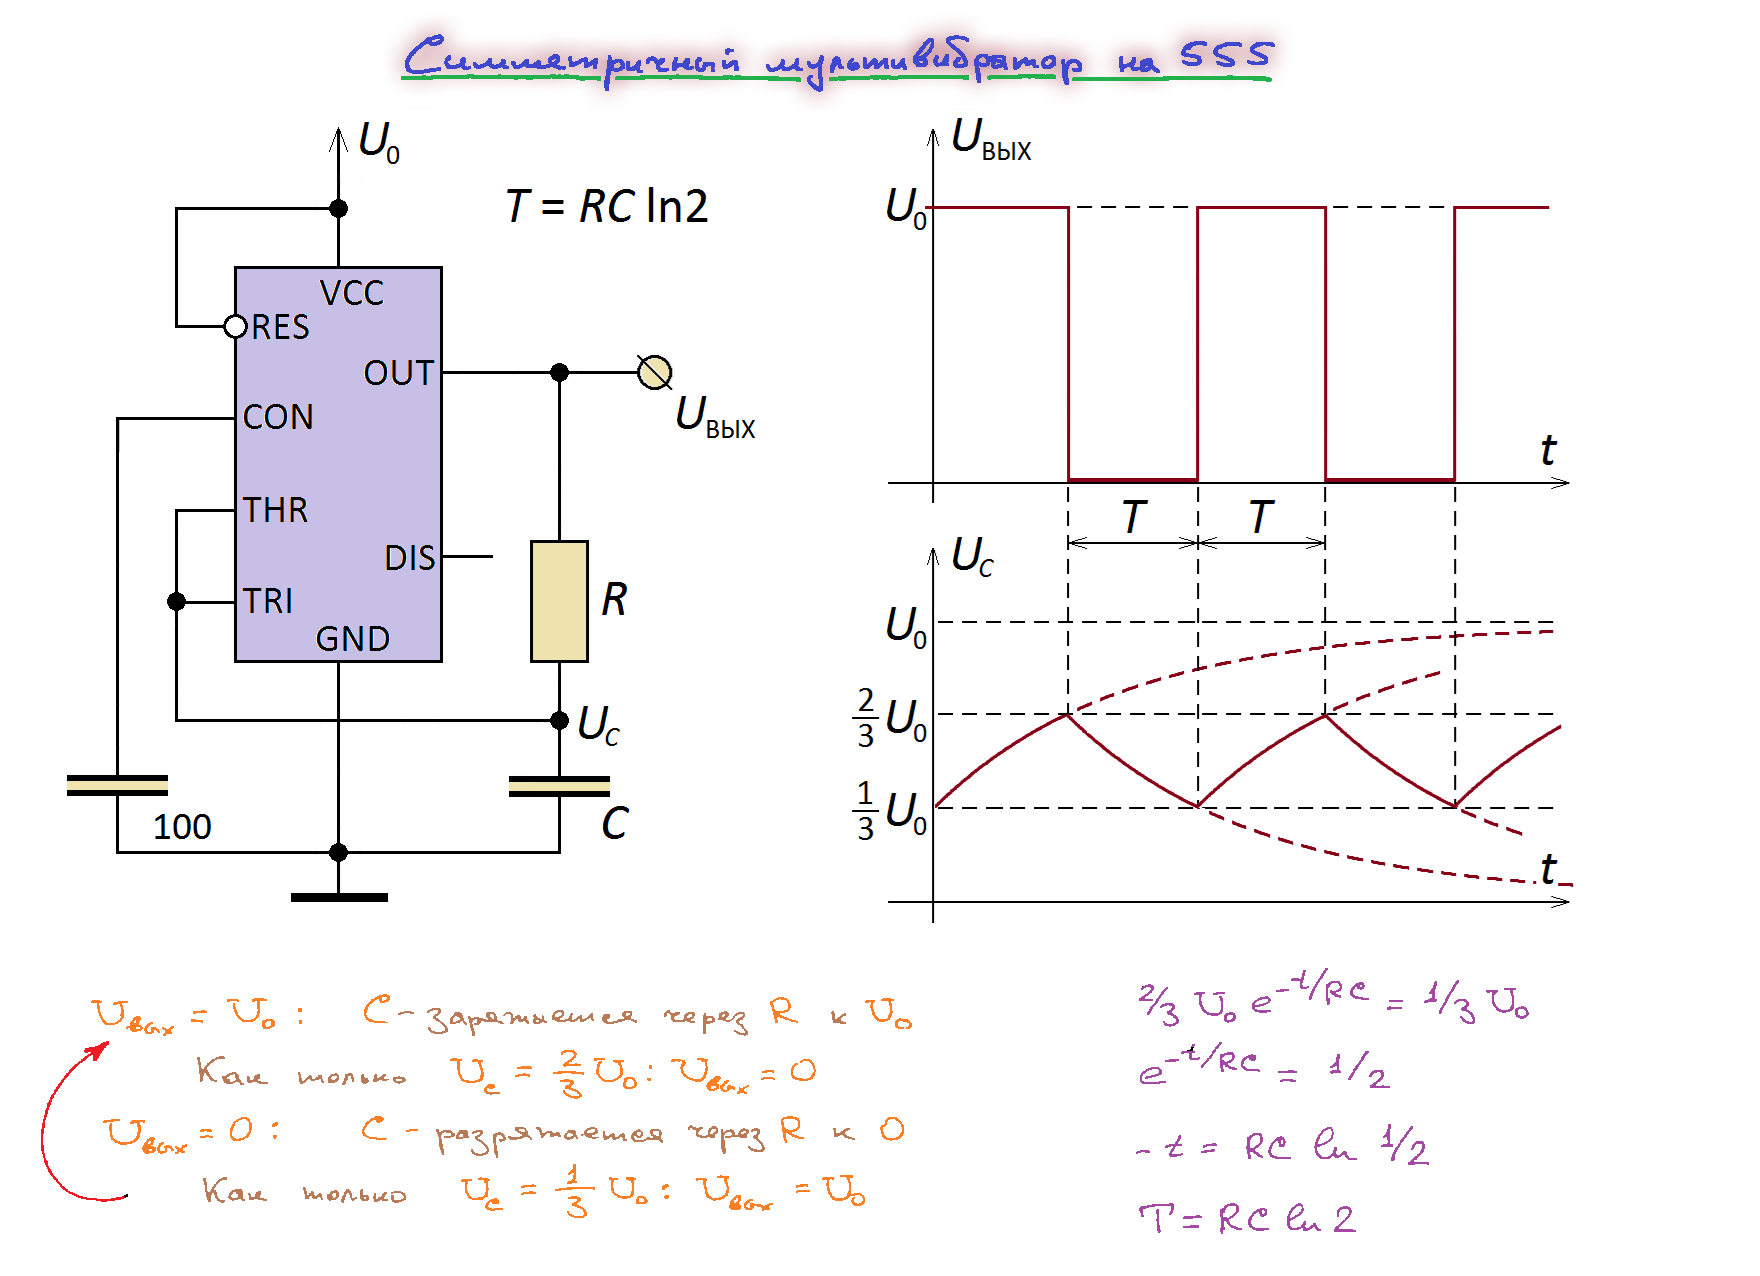 Симметричный мультивибратор на 555
U₀
T = RC ln2
VCC
RES
OUT
CON
U_ВЫХ
THR
DIS
R
TRI
GND
U_C
100
C
U_ВЫХ
U₀
t
T T
U_C
U₀
2/3 U₀
1/3 U₀
t
U_вых = U₀ : C - заряжается через R к U₀
Как только U_c = 2/3 U₀ : U_вых = 0
U_вых = 0 : C - разряжается через R к 0
Как только U_c = 1/3 U₀ : U_вых = U₀
2/3 U₀ e^(-t/RC) = 1/3 U₀
e^(-t/RC) = 1/2
- t = RC ln 1/2
T = RC ln 2